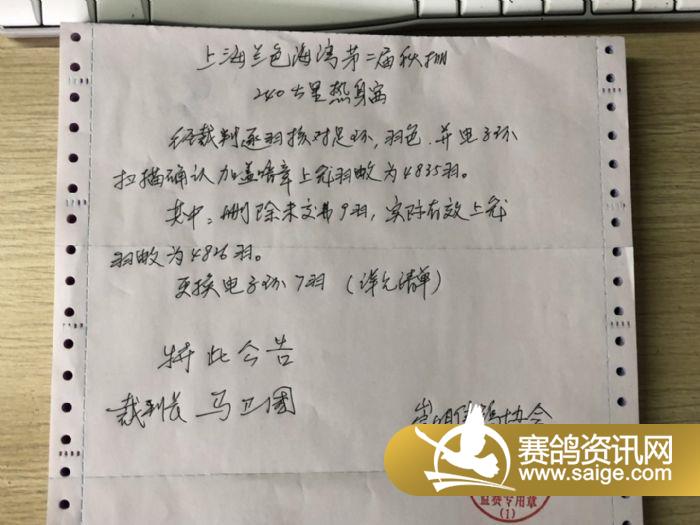 上海兰色海湾第二届秋棚
240公里热身赛
经裁判逐羽核对足环,羽色,并电子环
扫描确认加盖暗章上笼羽数为4835羽。
其中:删除未交费9羽,实际有效上笼
羽数为4826羽。
更换电子环7羽(详见清单)
特此公告
裁判长 马卫国
崇明信鸽协会
监赛专用章
(1)
赛鸽资讯网
www.saige.com